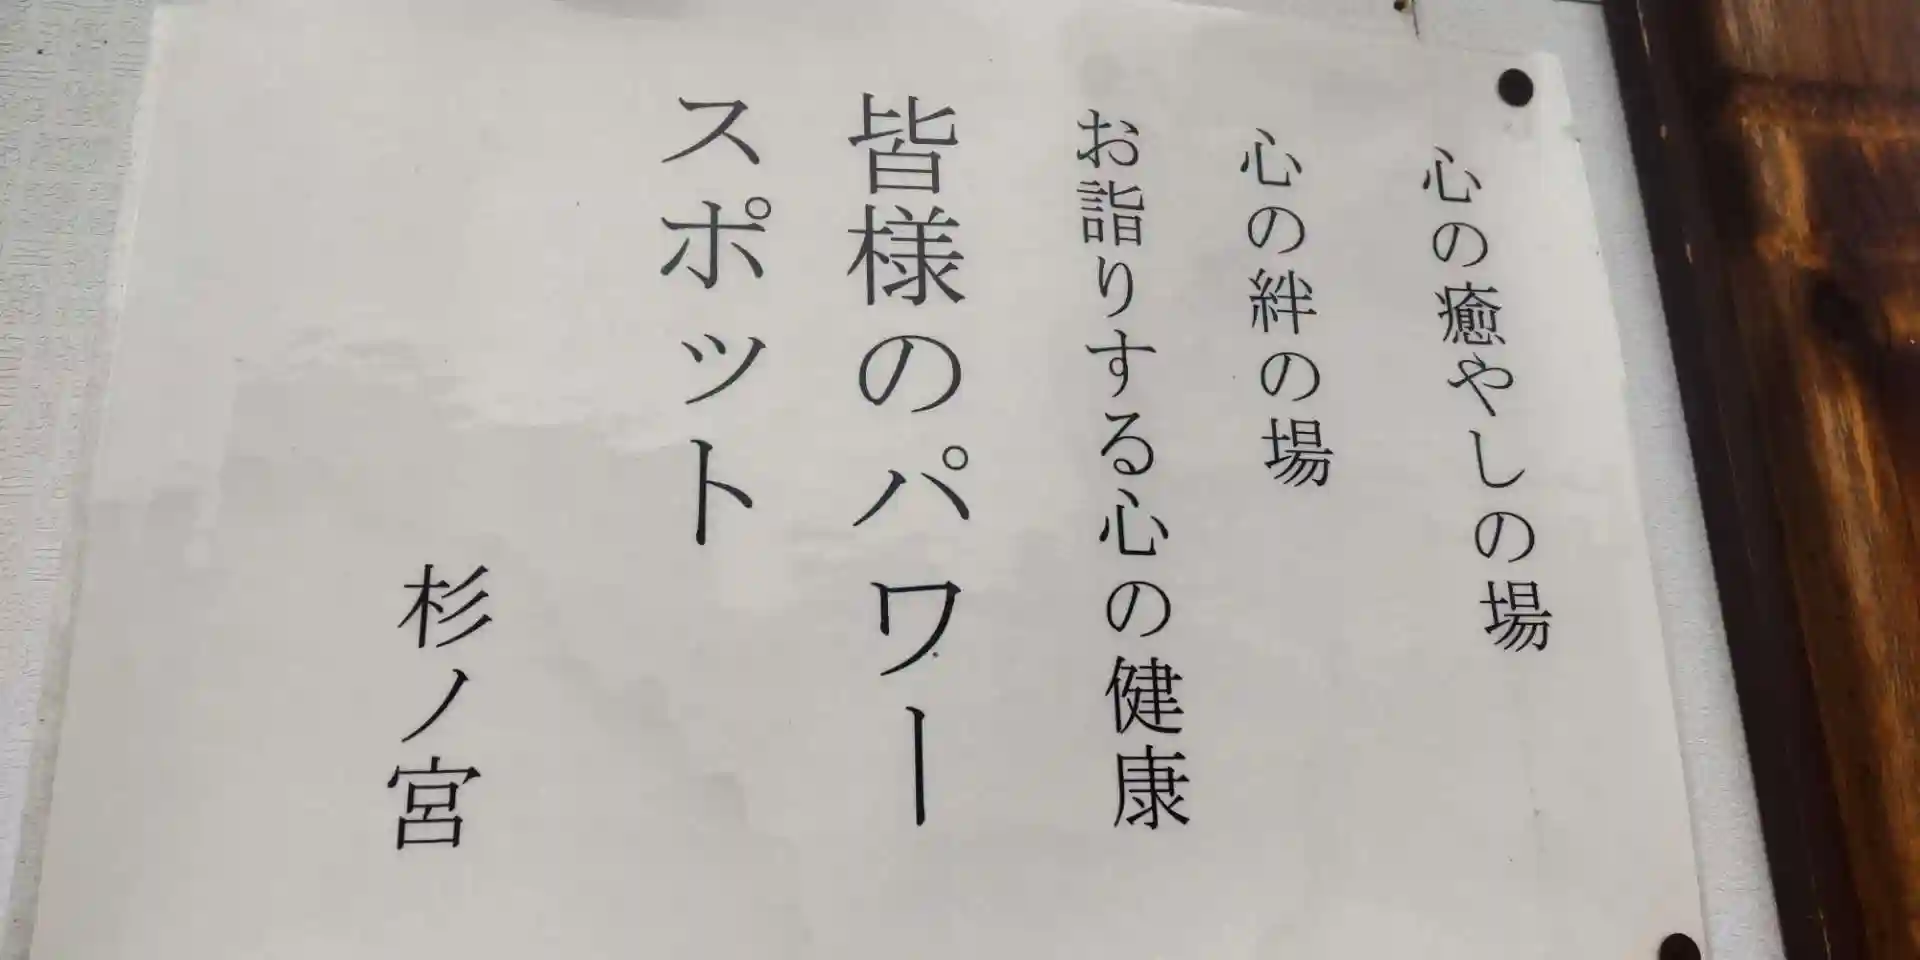 心の癒やしの場
心の絆の場
お詣りする心の健康
皆様のパワー
スポット
杉ノ宮